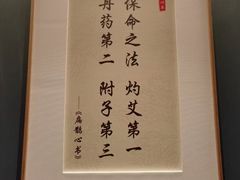 保命之法 灼艾第一
丹药第二 附子第三
——《扁鹊心书》